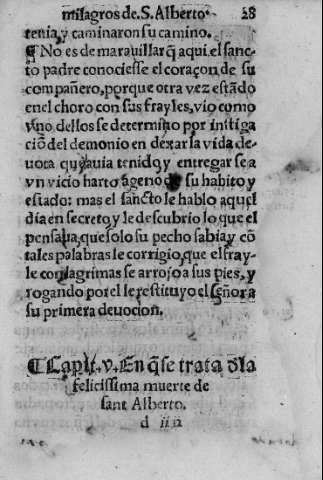 milagros de. S. Alberto. 28
tenia, y caminaron su camino.
¶ No es de marauillar q̃ aqui el sanc-
to padre conociesse el coraçon de su
compañero, porque otra vez estãdo
en el choro con sus frayles, vio como
vno dellos se determino por instiga
ciõ del demonio en dexar la vida de-
uota que auia tenido, y entregarse a
vn vicio harto ageno de su habito y
estado: mas el sancto le hablo aquel
dia en secreto, y le descubrio lo que el
pensaua, que solo su pecho sabia, y cõ
tales palabras le corrigio, que el fray-
le con lagrimas se arrojo a sus pies, y
rogando por el le restituyo el señor a
su primera deuocion.
¶ Capit. v. En q̃ se trata ďla
felicissima muerte de
sant Alberto.
d iiii